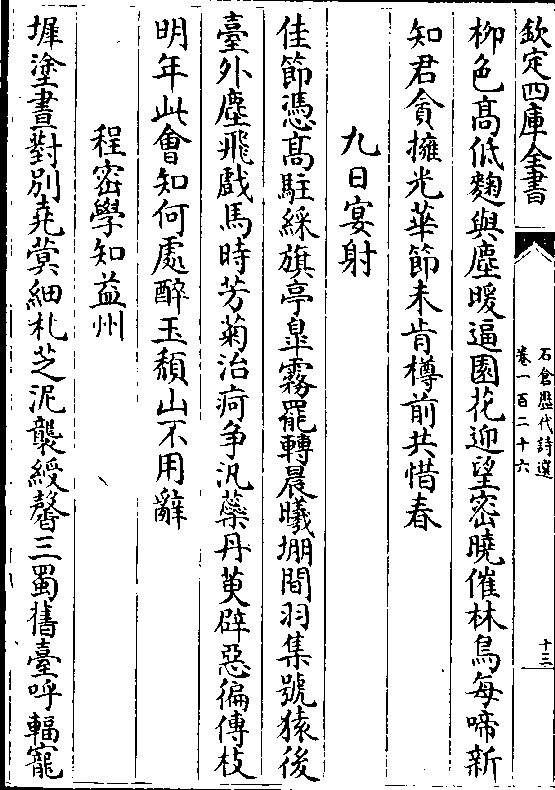 欽定四庫全書
石倉歷代詩選
卷一百二十六
十三
柳色髙低麴與塵暖逼園花迎望密曉催林鳥每啼新
知君貪擁光華節未肯樽前共惜春
九日宴射
佳節憑髙駐綵旗亭臯霧罷轉晨曦堋間羽集號猿後
臺外塵飛戲馬時芳菊治痾争汎蘂丹萸辟惡徧傳枝
明年此會知何處醉玉頽山不用辭
程密學知益州
墀塗晝對別堯蓂細札芝泥襲綬馨三蜀舊臺呼輻寵